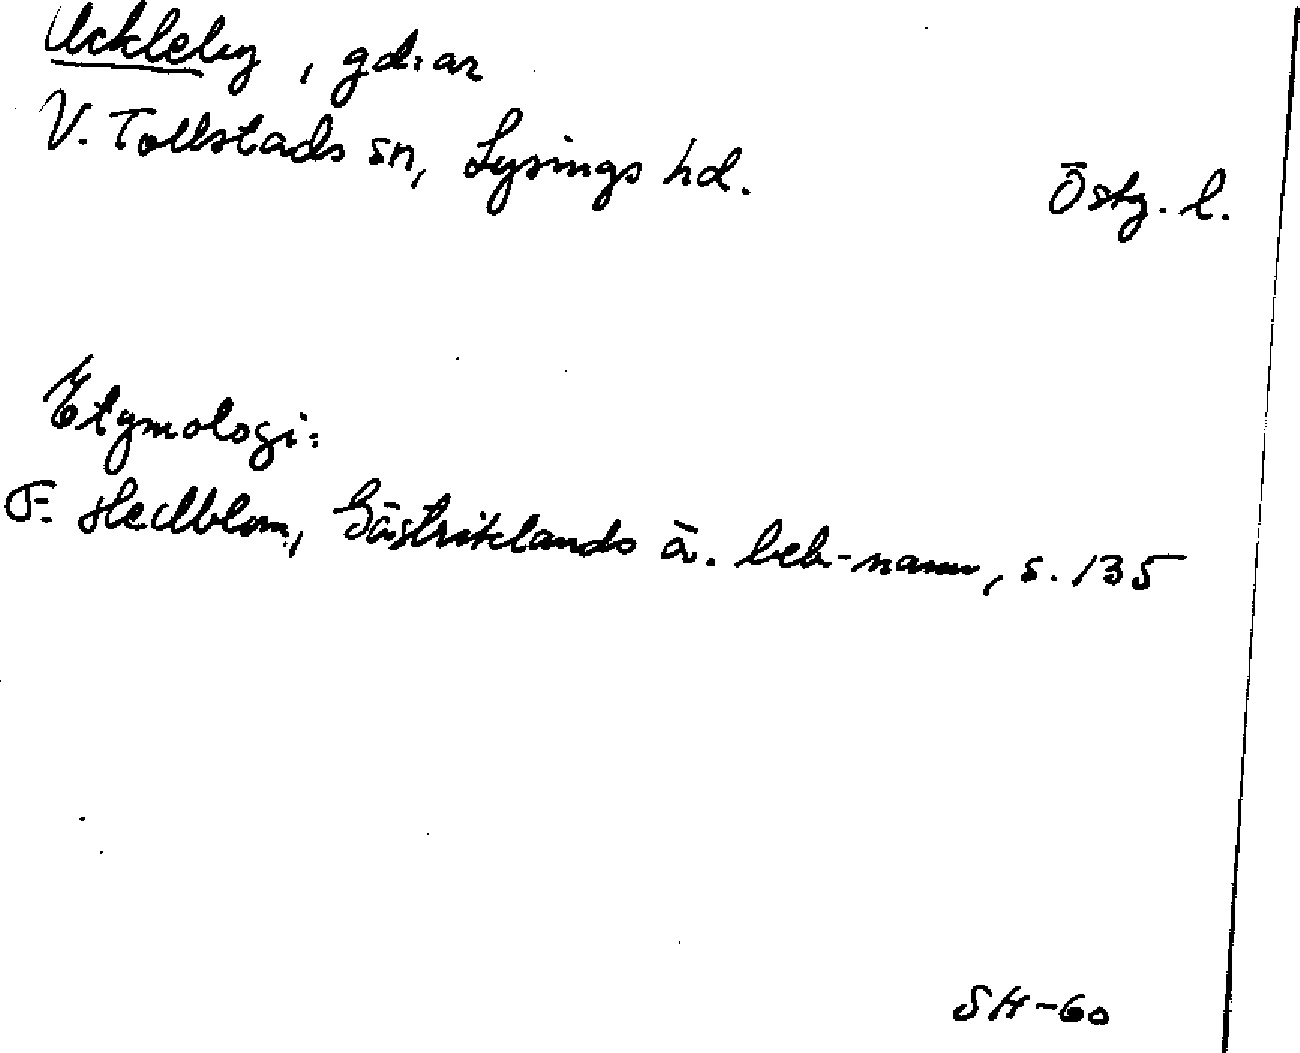 Uckleby, gd:ar
V. Tollstads sn, Lysings hd. Östg. l.
Etymologi:
F. Hedblom, Gästriklands ä. beb-namn, s. 135
SH-60